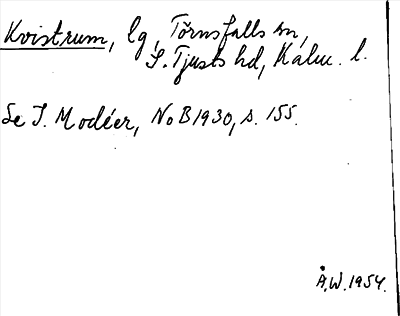 Kvistrum, lg, Törnsfalls sn,
S. Tjusts hd, Kalm. l.
Se I. Modéer, NoB 1930, s. 155.
Å.W. 1954.